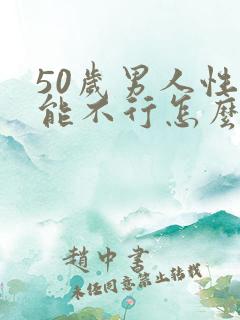 50歲男人性
能不行怎麼
趙中書
未經同意禁止轉載